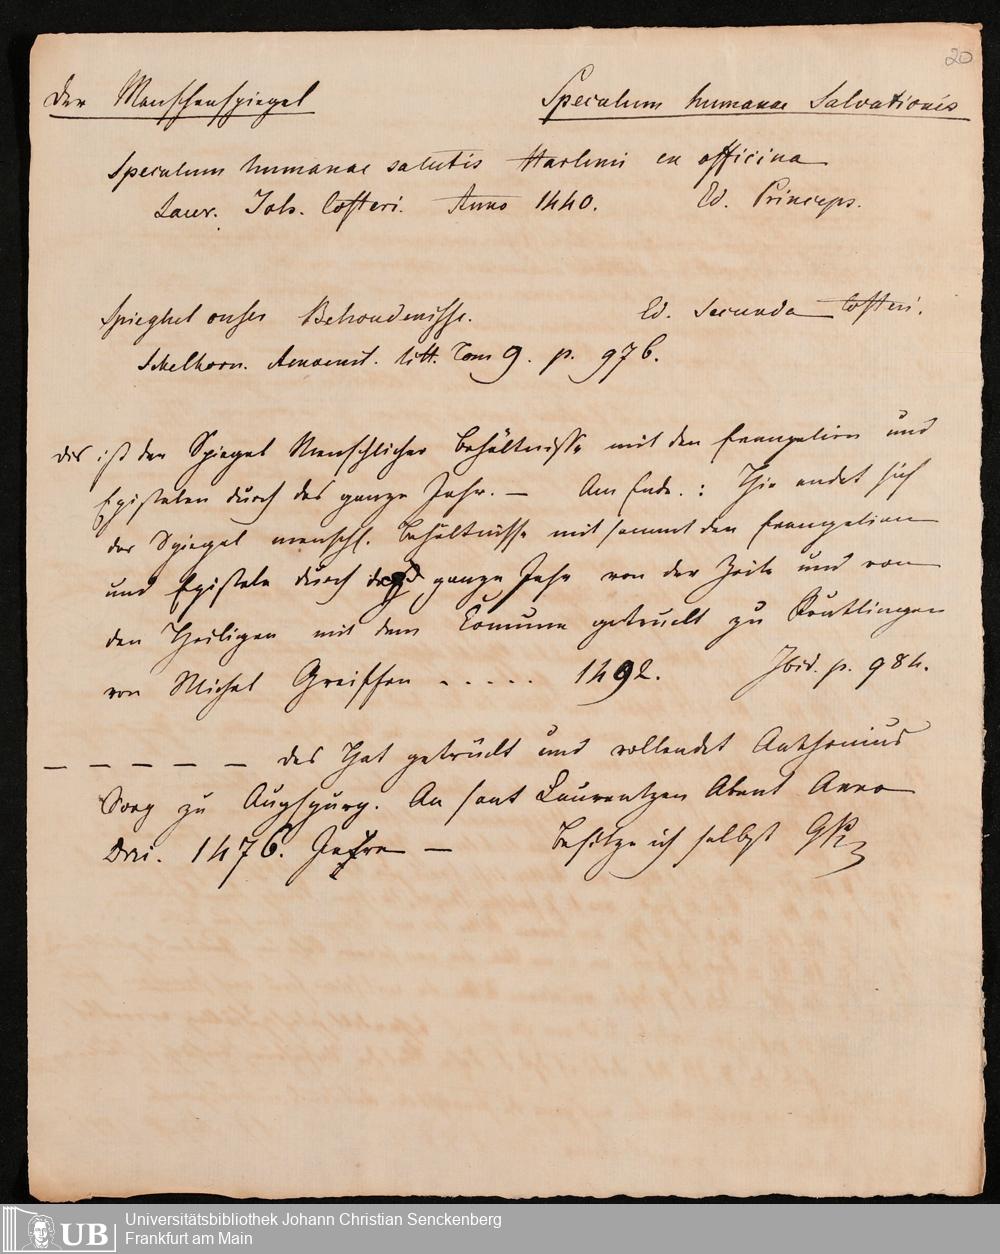 20
Der Menschenspiegel Speculum humanae Salvationis
Speculum humanae salutis Harlemi ex officina
Laur. Joh. Costeri. Anno 1440. Ed. Princeps.
Spieghel onser Behoudenisse. Ed. Secunda Costeri.
Schelhorn. Amoenit. litt. Tom 9. p. 976.
Dis ist der Spiegel Menschlicher Behältnisse mit den Evangelien und
Epistelen durch das ganze Jahr. — Am Ende. : Hie endet sich
der Spiegel menschl. Behältnisse mit sammt den Evangelien
und Epistele durch das ganze Jahr von der Zeite und von
den Heiligen mit dem Comune getruckt zu Reutlingen
von Michel Greiffen . . . . . 1492. Ibid. p. 984.
— — — — — das Hat getrückt und vollendet Anthonius
Sorg zu Augspurg. An sant Laurentzen Abent Anno
Dni. 1476. Jare — Besitze ich selbst
Universitätsbibliothek Johann Christian Senckenberg
UB Frankfurt am Main